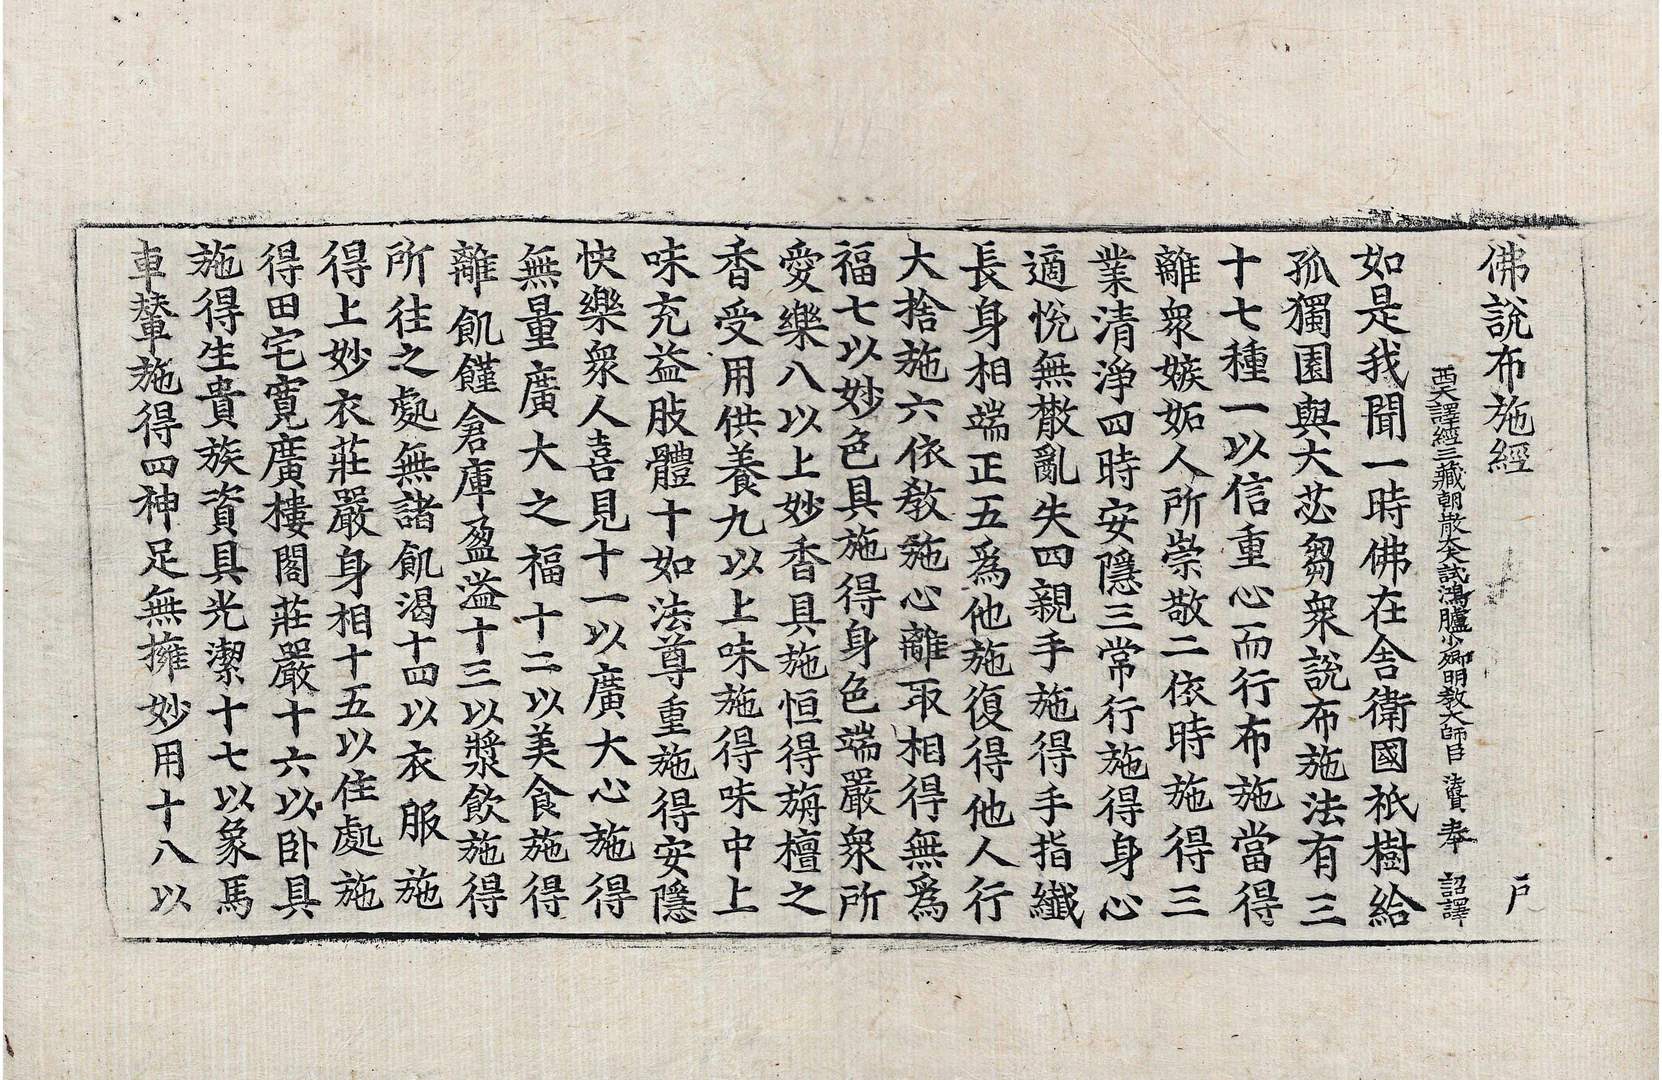 佛說布施經 戸
西天譯經三藏朝散大夫試鴻臚少卿明教大師臣 法賢 奉 詔譯
如是我聞一時佛在舍衛國祇樹給
孤獨園與大苾芻衆說布施法有三
十七種一以信重心而行布施當得
離衆嫉妬人所崇敬二依時施得三
業清淨四時安隱三常行施得身心
適悅無散亂失四親手施得手指纖
長身相端正五爲他施復得他人行
大捨施六依教施心離取相得無爲
福七以妙色具施得身色端嚴衆所
愛樂八以上妙香具施恒得旃檀之
香受用供養九以上味施得味中上
味充益肢體十如法尊重施得安隱
快樂衆人喜見十一以廣大心施得
無量廣大之福十二以美食施得
離飢饉倉庫盈溢十三以漿飲施得
所往之處無諸飢渴十四以衣服施
得上妙衣莊嚴身相十五以住處施
得田宅寬廣樓閣莊嚴十六以卧具
施得生貴族資具光潔十七以象馬
車輦施得四神足無擁妙用十八以